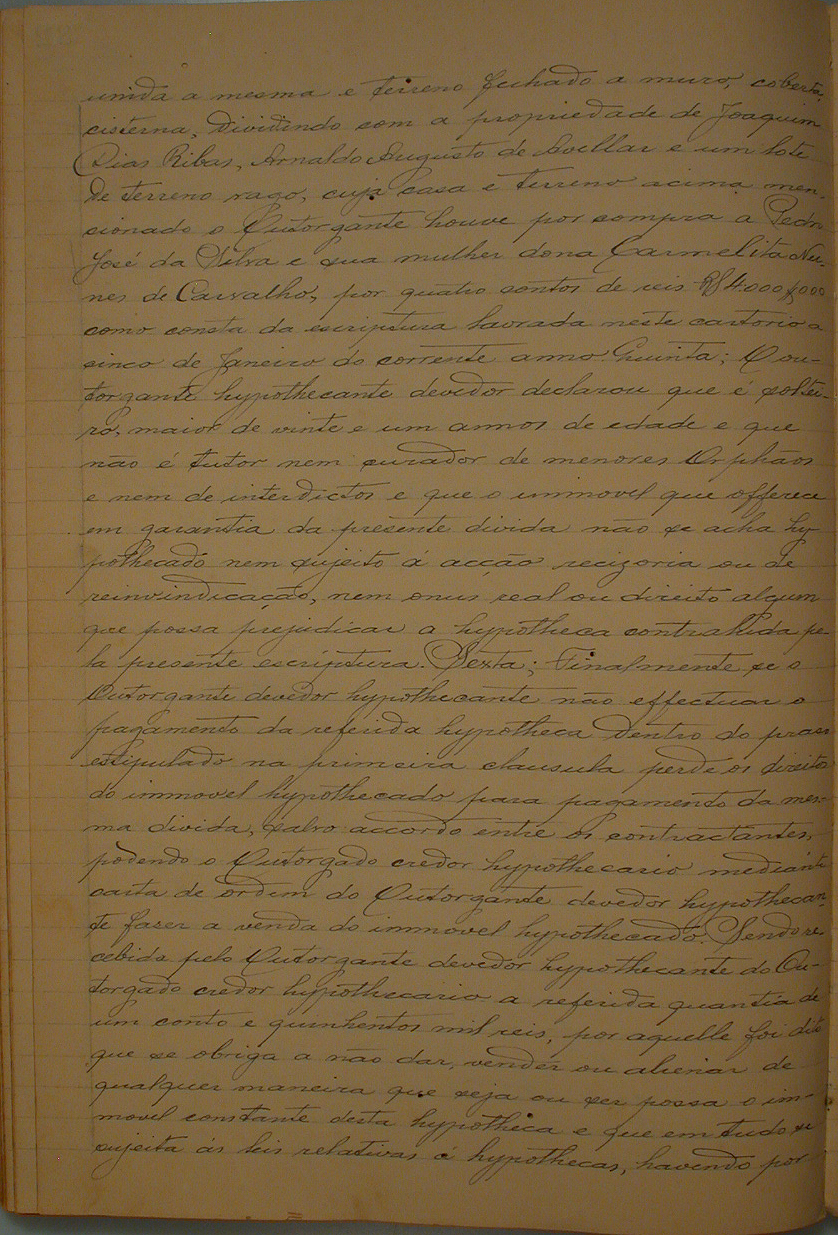 unida a mesma e terreno fechado a muro, coberta,
cisterna, dividindo com a propriedade de Joaquim
Dias Ribas, Arnaldo Augusto de Avellar e um lote
de terreno vago, cuja casa e terreno acima men-
cionado o Outorgante houve por compra a Pedro
José da Silva e sua mulher dona Carmelita Nu-
nes de Carvalho, por quatro contos de reis R$ 4:000$000
como consta da escriptura lavrada neste cartorio a
cinco de Janeiro do corrente anno. Quinta; O ou-
torgante hypothecante devedor declarou que é soltei-
ro, maior de vinte e um annos de edade e que
não é tutor nem curador de menores Orphãos
e nem de interdictos e que o immovel que offerece
em garantia da presente divida não se acha hy-
pothecado nem sujeito á acção recizoria ou de
reinvindicação, nem onus real ou direito algum
que possa prejudicar a hypotheca contrahida pe-
la presente escriptura. Sexta; Finalmente se o
Outorgante devedor hypothecante não effectuar o
pagamento da referida hypotheca dentro do praso
estipulado na primeira clausula perde os direitos
do immovel hypothecado para pagamento da mes-
ma divida, salvo accordo entre os contractantes,
podendo o Outorgado credor hypothecario mediante
carta de ordem do Outorgante devedor hypothecan-
te faser a venda do immovel hypothecado. Sendo re
cebida pelo Outorgante devedor hypothecante do Ou-
torgado credor hypothecario a referida quantia de
um conto e quinhentos mil reis, por aquelle foi dito
que se obriga a não dar, vender ou alienar de
qualquer maneira que seja ou ser possa o im-
movel constante desta hypotheca e que em tudo se
sujeita ás leis relativas á hypothecas, havendo por